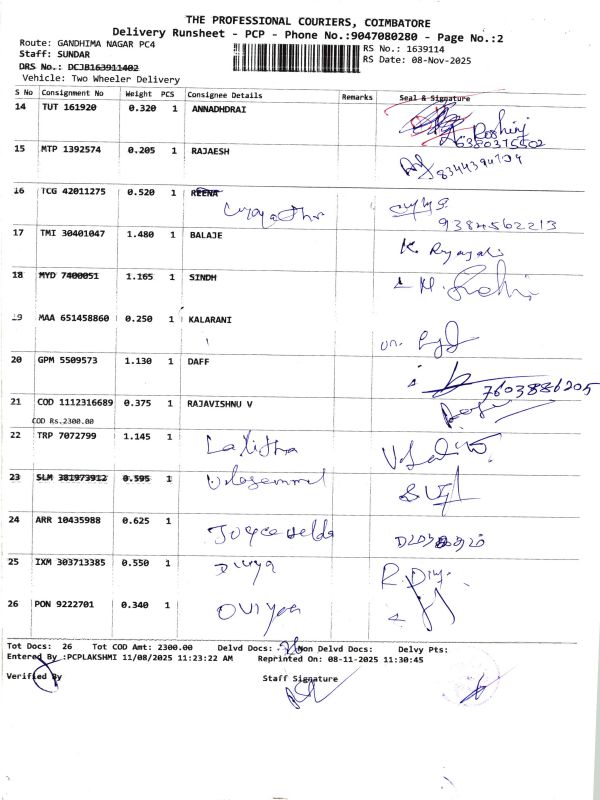 THE PROFESSIONAL COURIERS, COIMBATORE
Delivery Runsheet - PCP - Phone No.:9047080280 - Page No.:2
Route: GANDHIMA NAGAR PC4
Staff: SUNDAR
RS No.: 1639114
DRS No.: DCJB163911402
RS Date: 08-Nov-2025
Vehicle: Two Wheeler Delivery
S No Consignment No Weight PCS Consignee Details Remarks Seal & Signature
14 TUT 161920 0.320 1 ANNADHDRAI
Roshinj
6380315502
15 MTP 1392574 0.205 1 RAJAESH
16 TCG 42011275 0.520 1 REENA
9384562213
17 TMI 30401047 1.480 1 BALAJE
18 MYD 7400051 1.165 1 SINDH
19 MAA 651458860 0.250 1 KALARANI
20 GPM 5509573 1.130 1 DAFF
7603886205
21 COD 1112316689 0.375 1 RAJAVISHNU V
COD Rs.2300.00
22 TRP 7072799 1.145 1 Lalitha
23 SLM 381973912 0.595 1
24 ARR 10435988 0.625 1
25 IXM 303713385 0.550 1 Divya R. Divy
26 PON 9222701 0.340 1 OViyaa
Tot Docs: 26 Tot COD Amt: 2300.00 Delvd Docs: 26 Non Delvd Docs: Delvy Pts:
Entered By :PCPLAKSHMI 11/08/2025 11:23:22 AM Reprinted On: 08-11-2025 11:30:45
Verified By Staff Signature